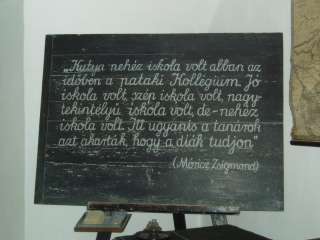 „Kutya nehéz iskola volt abban az
időben a pataki Kollégium. Jó
iskola volt, szép iskola volt, nagy-
tekintélyű iskola volt, de-nehéz
iskola volt. Itt ugyanis a tanárok
azt akarták, hogy a diák tudjon"
(Móricz Zsigmond)